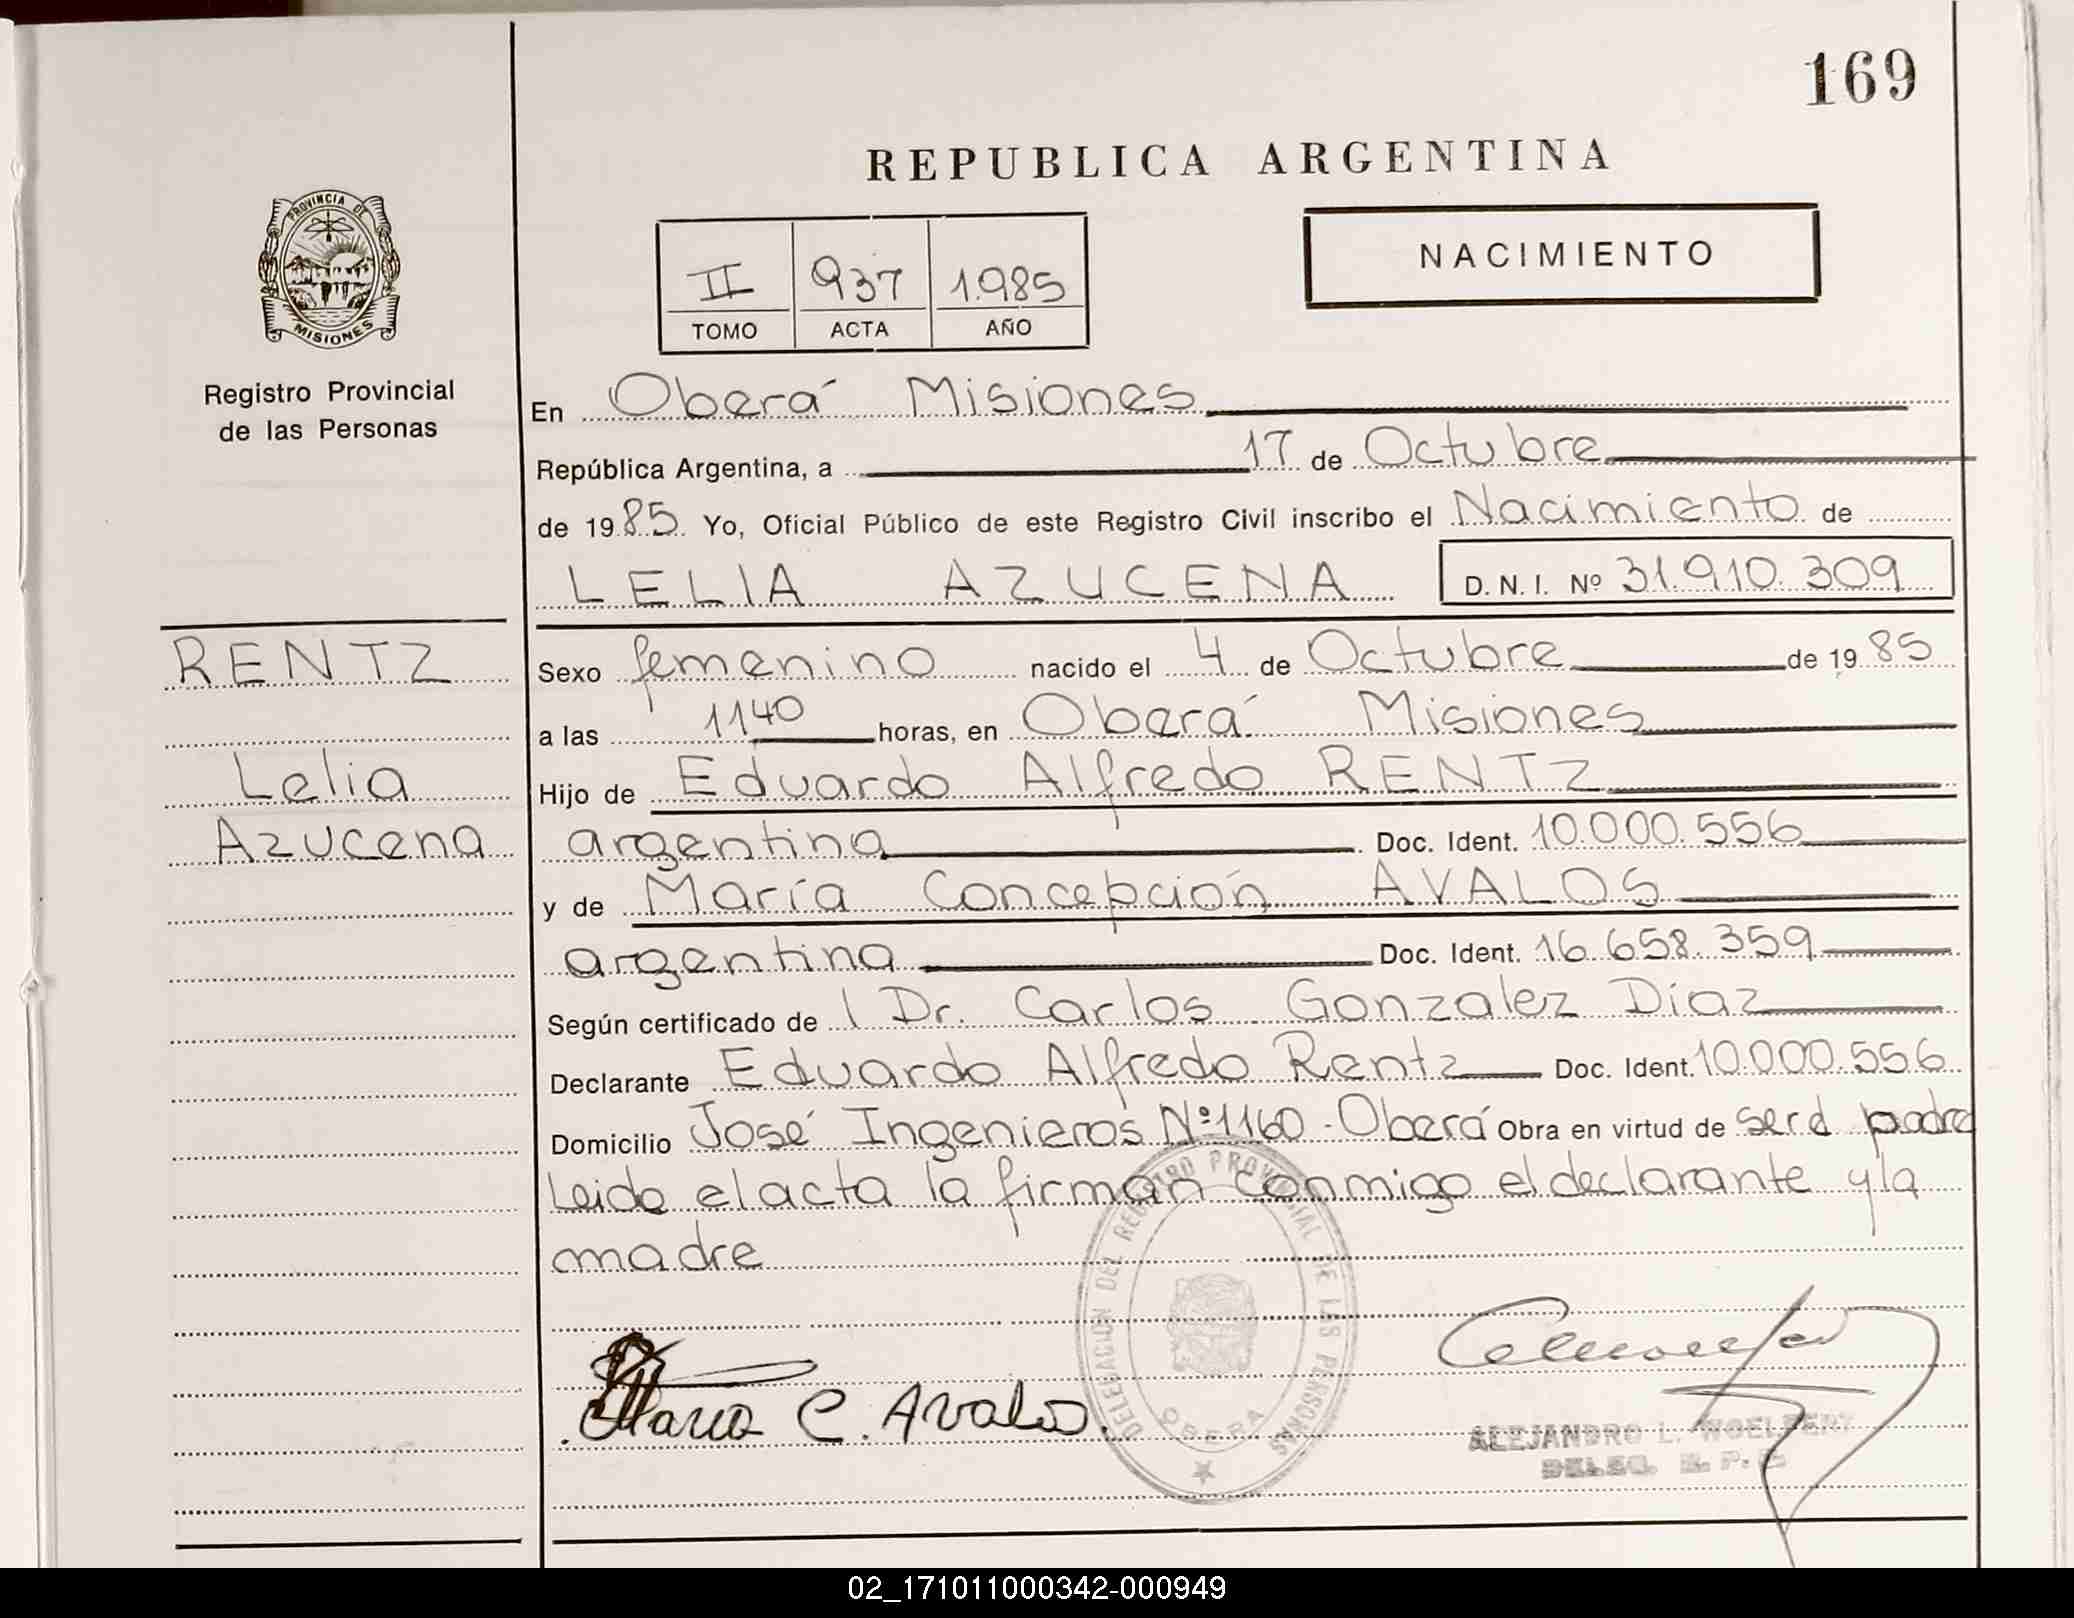 169
REPUBLICA ARGENTINA
PROVINCIA DE
MISIONES
Registro Provincial
de las Personas
NACIMIENTO
II 937 1.985
TOMO ACTA AÑO
En Oberá Misiones
República Argentina, a 17 de Octubre
de 1985. Yo, Oficial Público de este Registro Civil inscribo el Nacimiento de
LELIA AZUCENA D. N. I. Nº 31.910.309
RENTZ
Lelia
Azucena
Sexo femenino nacido el 4 de Octubre de 1985
a las 1140 horas, en Oberá Misiones
Hijo de Eduardo Alfredo RENTZ
argentina Doc. Ident. 10.000.556
y de María Concepción AVALOS
argentina Doc. Ident. 16.658.359
Según certificado de l Dr. Carlos Gonzalez Diaz
Declarante Eduardo Alfredo Rentz Doc. Ident. 10.000.556
Domicilio José Ingenieros Nº 1160 - Oberá Obra en virtud de ser el padre
Leido el acta la firman conmigo el declarante y la
madre
DELEGACION DEL REGISTRO PROVINCIAL DE LAS PERSONAS
OBERA
Maria C. Avalos.
ALEJANDRO L. WOELFERT
DELEG. R. P. P.
02_171011000342-000949